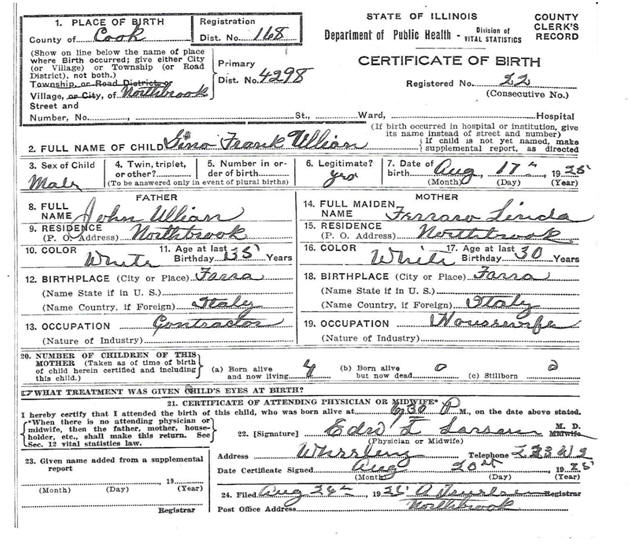 STATE OF ILLINOIS
Department of Public Health - Division of VITAL STATISTICS
COUNTY CLERK'S RECORD
CERTIFICATE OF BIRTH
Registered No. 22
(Consecutive No.)
1. PLACE OF BIRTH
County of Cook
Registration Dist. No. 168
(Show on line below the name of place where Birth occurred; give either City (or Village) or Township (or Road District), not both.)
Primary Dist. No. 4298
Township, or Road District of
Village, or City, of Northbrook
Street and Number, No. St., Ward, Hospital
(If birth occurred in hospital or institution, give its name instead of street and number)
2. FULL NAME OF CHILD Gino Frank Ullian
If child is not yet named, make supplemental report, as directed
3. Sex of Child Male
4. Twin, triplet, or other?
5. Number in order of birth
(To be answered only in event of plural births)
6. Legitimate? yes
7. Date of birth Aug 17th 1925
(Month) (Day) (Year)
FATHER
8. FULL NAME John Ullian
9. RESIDENCE (P. O. Address) Northbrook
10. COLOR White
11. Age at last Birthday 35 Years
12. BIRTHPLACE (City or Place) Farra
(Name State if in U. S.)
(Name Country, if Foreign) Italy
13. OCCUPATION Contractor
(Nature of Industry)
MOTHER
14. FULL MAIDEN NAME Ferraro Linda
15. RESIDENCE (P. O. Address) Northbrook
16. COLOR White
17. Age at last Birthday 30 Years
18. BIRTHPLACE (City or Place) Farra
(Name State if in U. S.)
(Name Country, if Foreign) Italy
19. OCCUPATION Housewife
(Nature of Industry)
20. NUMBER OF CHILDREN OF THIS MOTHER (Taken as of time of birth of child herein certified and including this child.)
(a) Born alive and now living 4
(b) Born alive but now dead 0
(c) Stillborn
WHAT TREATMENT WAS GIVEN CHILD'S EYES AT BIRTH?
21. CERTIFICATE OF ATTENDING PHYSICIAN OR MIDWIFE*
I hereby certify that I attended the birth of this child, who was born alive at 6:30 P M., on the date above stated.
*When there is no attending physician or midwife, then the father, mother, householder, etc., shall make this return. See Sec. 12 vital statistics law.
22. [Signature] Edw L Larson M. D. Midwife
(Physician or Midwife)
Address Wheeling Telephone
Date Certificate Signed Aug 20th 1925
(Month) (Day) (Year)
23. Given name added from a supplemental report
19
(Month) (Day) (Year)
Registrar
24. Filed Aug 26th 1925 Registrar
Post Office Address Northbrook